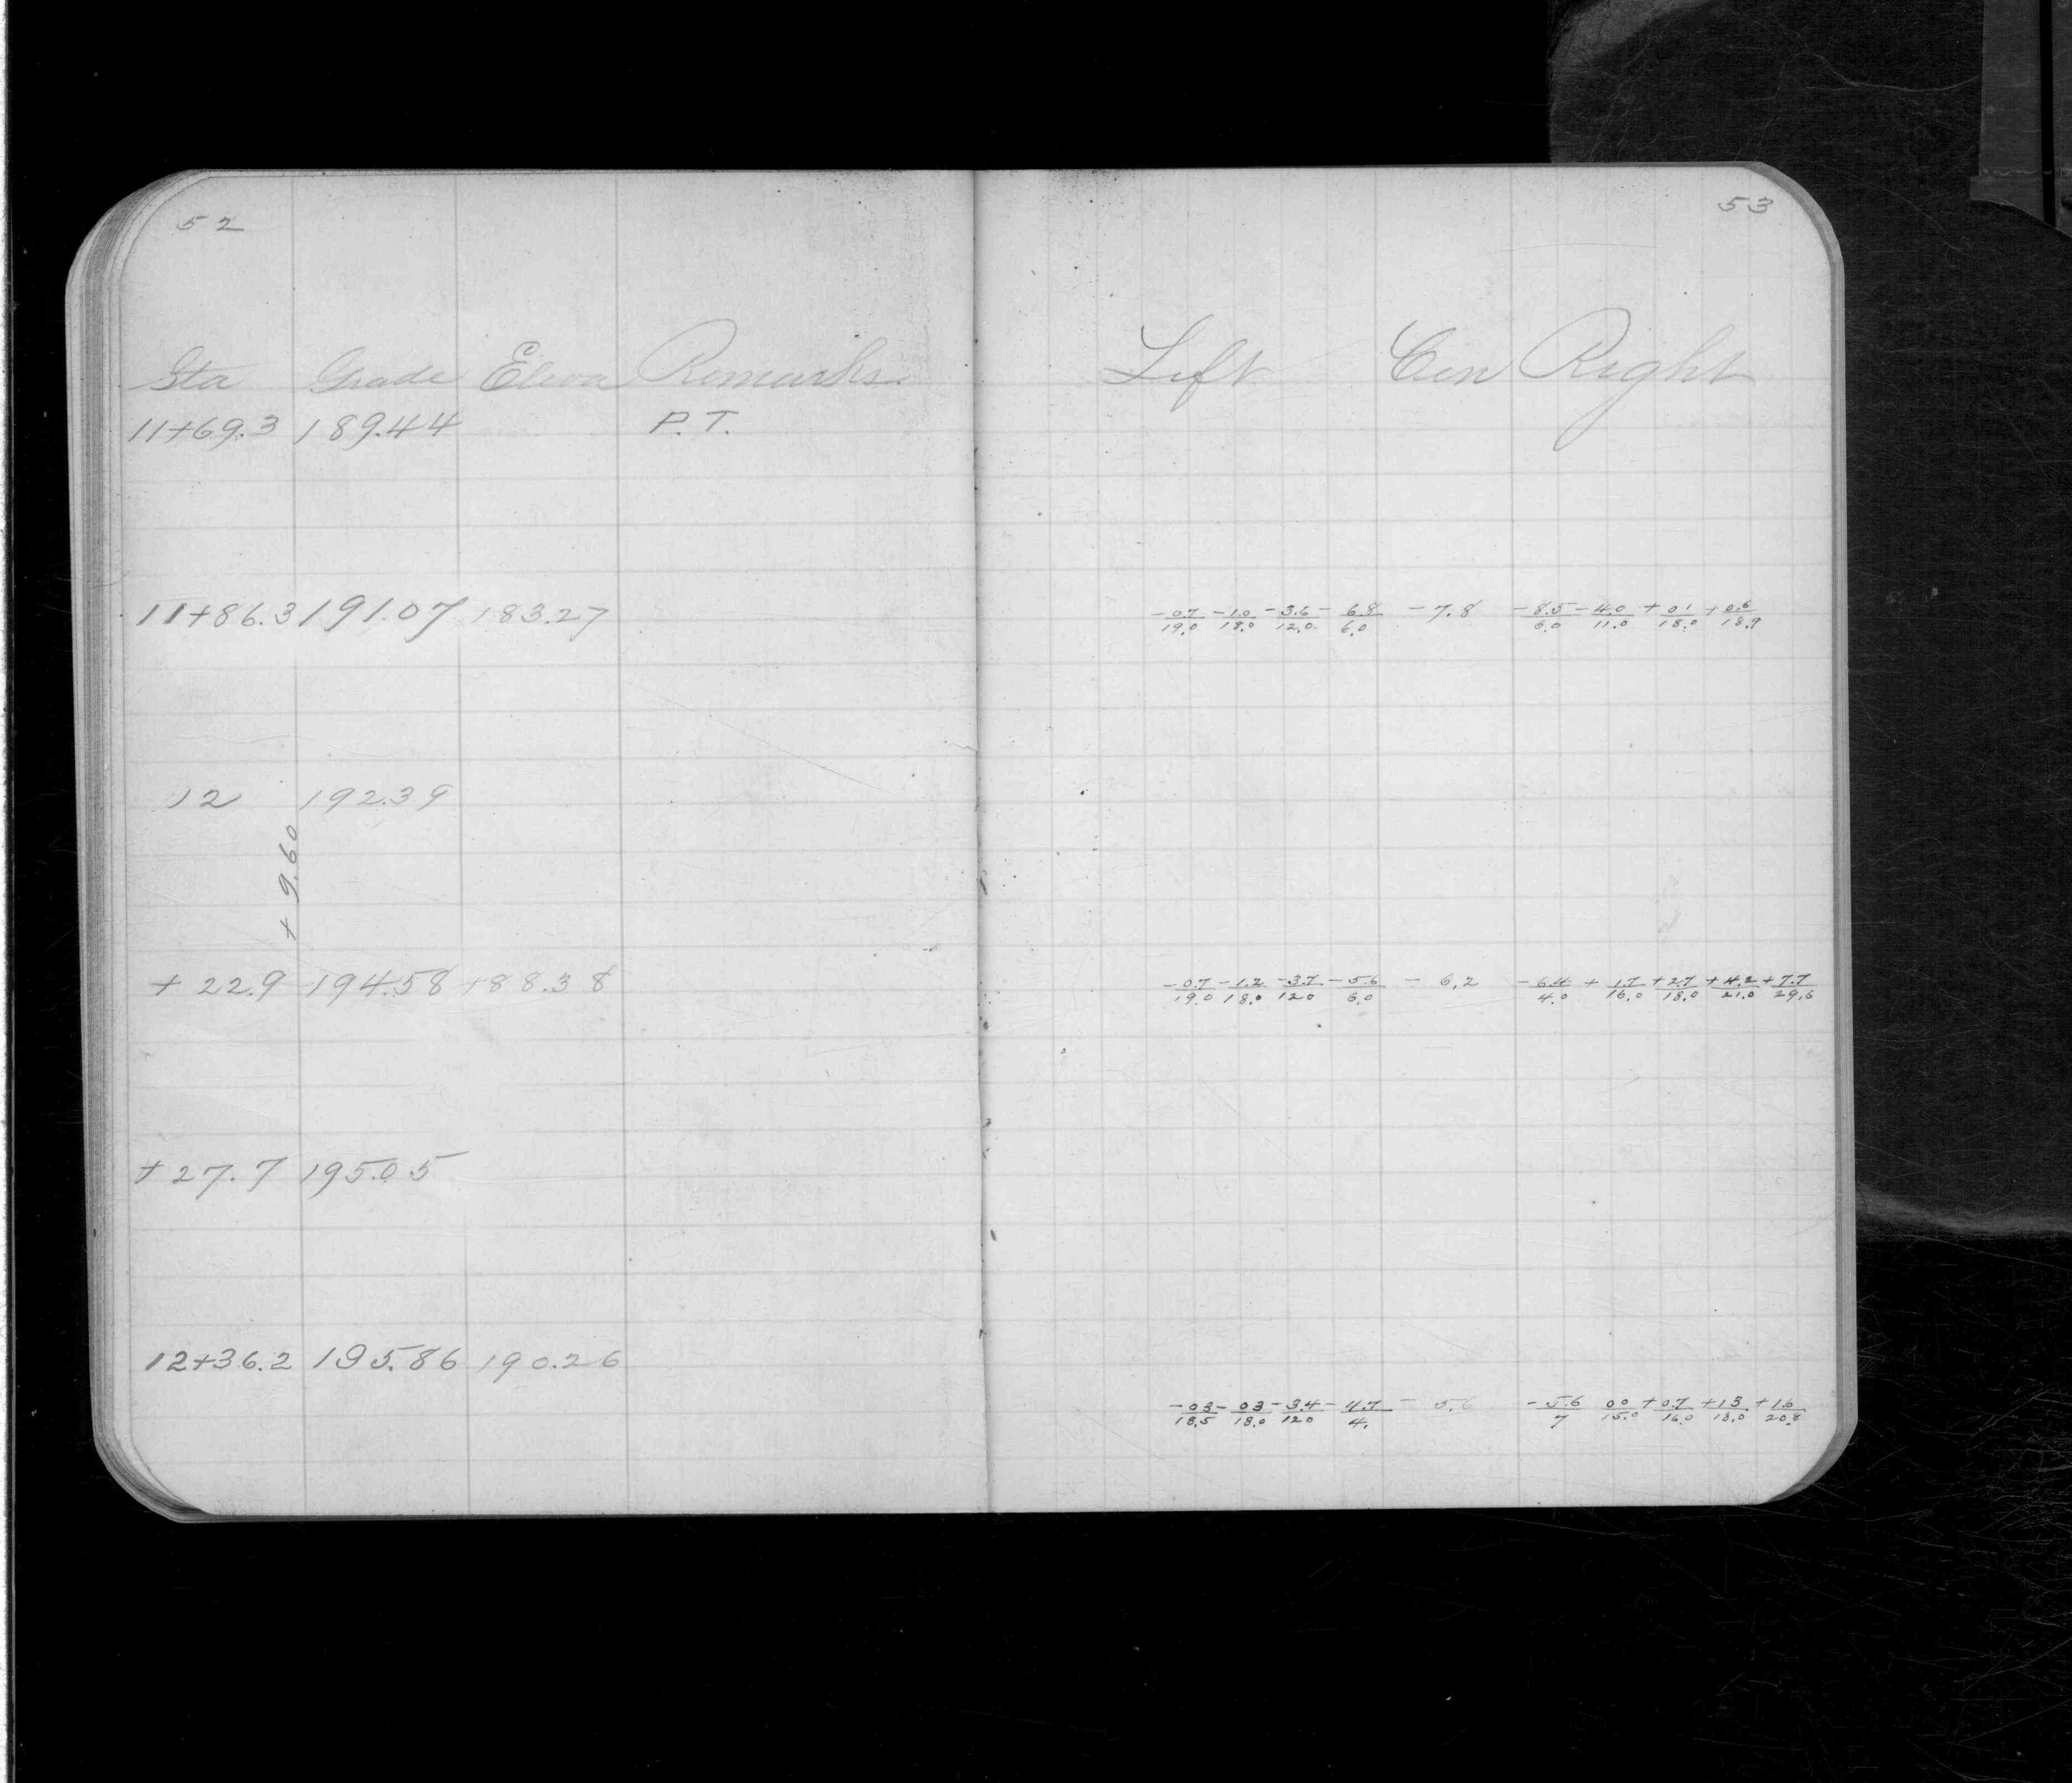 52
Sta Grade Eleva Remarks
11+69.3 189.44 P.T.
11+86.3 191.07 183.27
12 192.39
+ 9.60
+ 22.9 194.58 188.38
+ 27.7 195.05
12+36.2 195.86 190.26
53
Left Cen Right
- 0.7/19.0 - 1.0/18.0 - 3.6/12.0 - 6.8/6.0 - 7.8 - 8.5/6.0 - 4.0/11.0 + 0.1/18.0 + 0.6/18.9
- 0.7/19.0 - 1.2/18.0 - 3.7/12.0 - 5.6/6.0 - 6.2 - 6.4/4.0 + 1.7/16.0 + 2.7/18.0 + 4.2/21.0 + 7.7/29.6
- 0.3/18.5 - 0.3/18.0 - 3.4/12.0 - 4.7/4. - 5.6 - 5.6/7 0.0/15.0 + 0.7/16.0 + 1.3/18.0 + 1.6/20.8